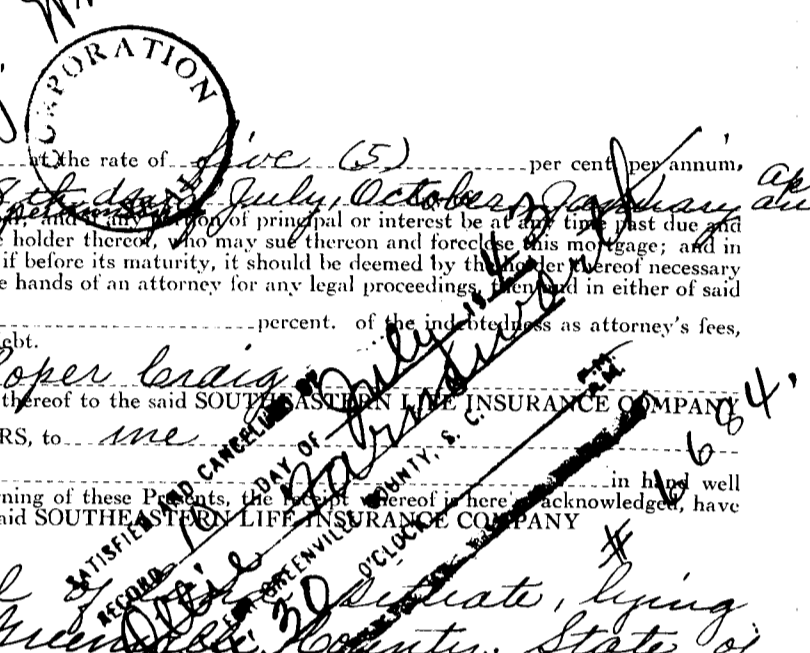 CORPORATION
SEAL
at the rate of five (5) per cent per annum,
8th day July, October, January
and any portion of principal or interest be at any time past due and
holder thereof, who may sue thereon and foreclose this mortgage; and in
if before its maturity, it should be deemed by the holder thereof necessary
e hands of an attorney for any legal proceedings, then and in either of said
percent. of the indebtedness as attorney's fees,
ebt.
oper Craig
thereof to the said SOUTHEASTERN LIFE INSURANCE COMPANY
RS, to me
in hand well
ning of these Presents, the receipt whereof is here acknowledged, have
aid SOUTHEASTERN LIFE INSURANCE COMPANY
situate, lying
Greenville County, State of
SATISFIED AND CANCELLED OF
RECORD 16 DAY OF July
Ollie Farnsworth
FOR GREENVILLE COUNTY, S. C.
30 O'CLOCK
# 6684